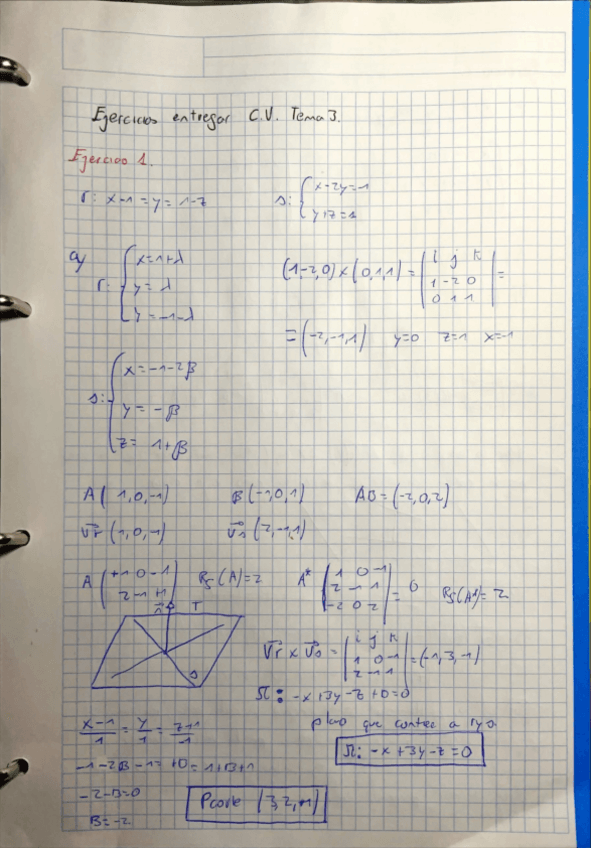 Ejercicios entregar C.V. Tema 3.
Ejercicio 1.
r: x-1 = y = 1-z
s: { x-2y=-1
y+z=1
a)
r: { x=1+λ
y=λ
y=-1-λ
(1,-2,0)×(0,1,1) = | i j k
1 -2 0
0 1 1 | =
=(-2,-1,1) y=0 z=1 x=-1
s: { x=-1-2β
y= -β
z= 1+β
A(1,0,-1) B(-1,0,1) AB=(-2,0,2)
Vr (1,0,-1) Vs (2,-1,1)
A ( +1 0 -1
2 -1 +1 ) Rg(A)=2
A* | 1 0 -1
2 -1 1
-2 0 2 | = 0 Rg(A*)=2
Vr × Vs = | i j k
1 0 -1
2 -1 1 | = (-1,3,-1)
π: -x+3y-z+D=0
plano que contiene a r y s
π: -x+3y-z=0
x-1/1 = y/1 = z+1/-1
-2-β=0
β=-2
Pcorte (3,2,+1)